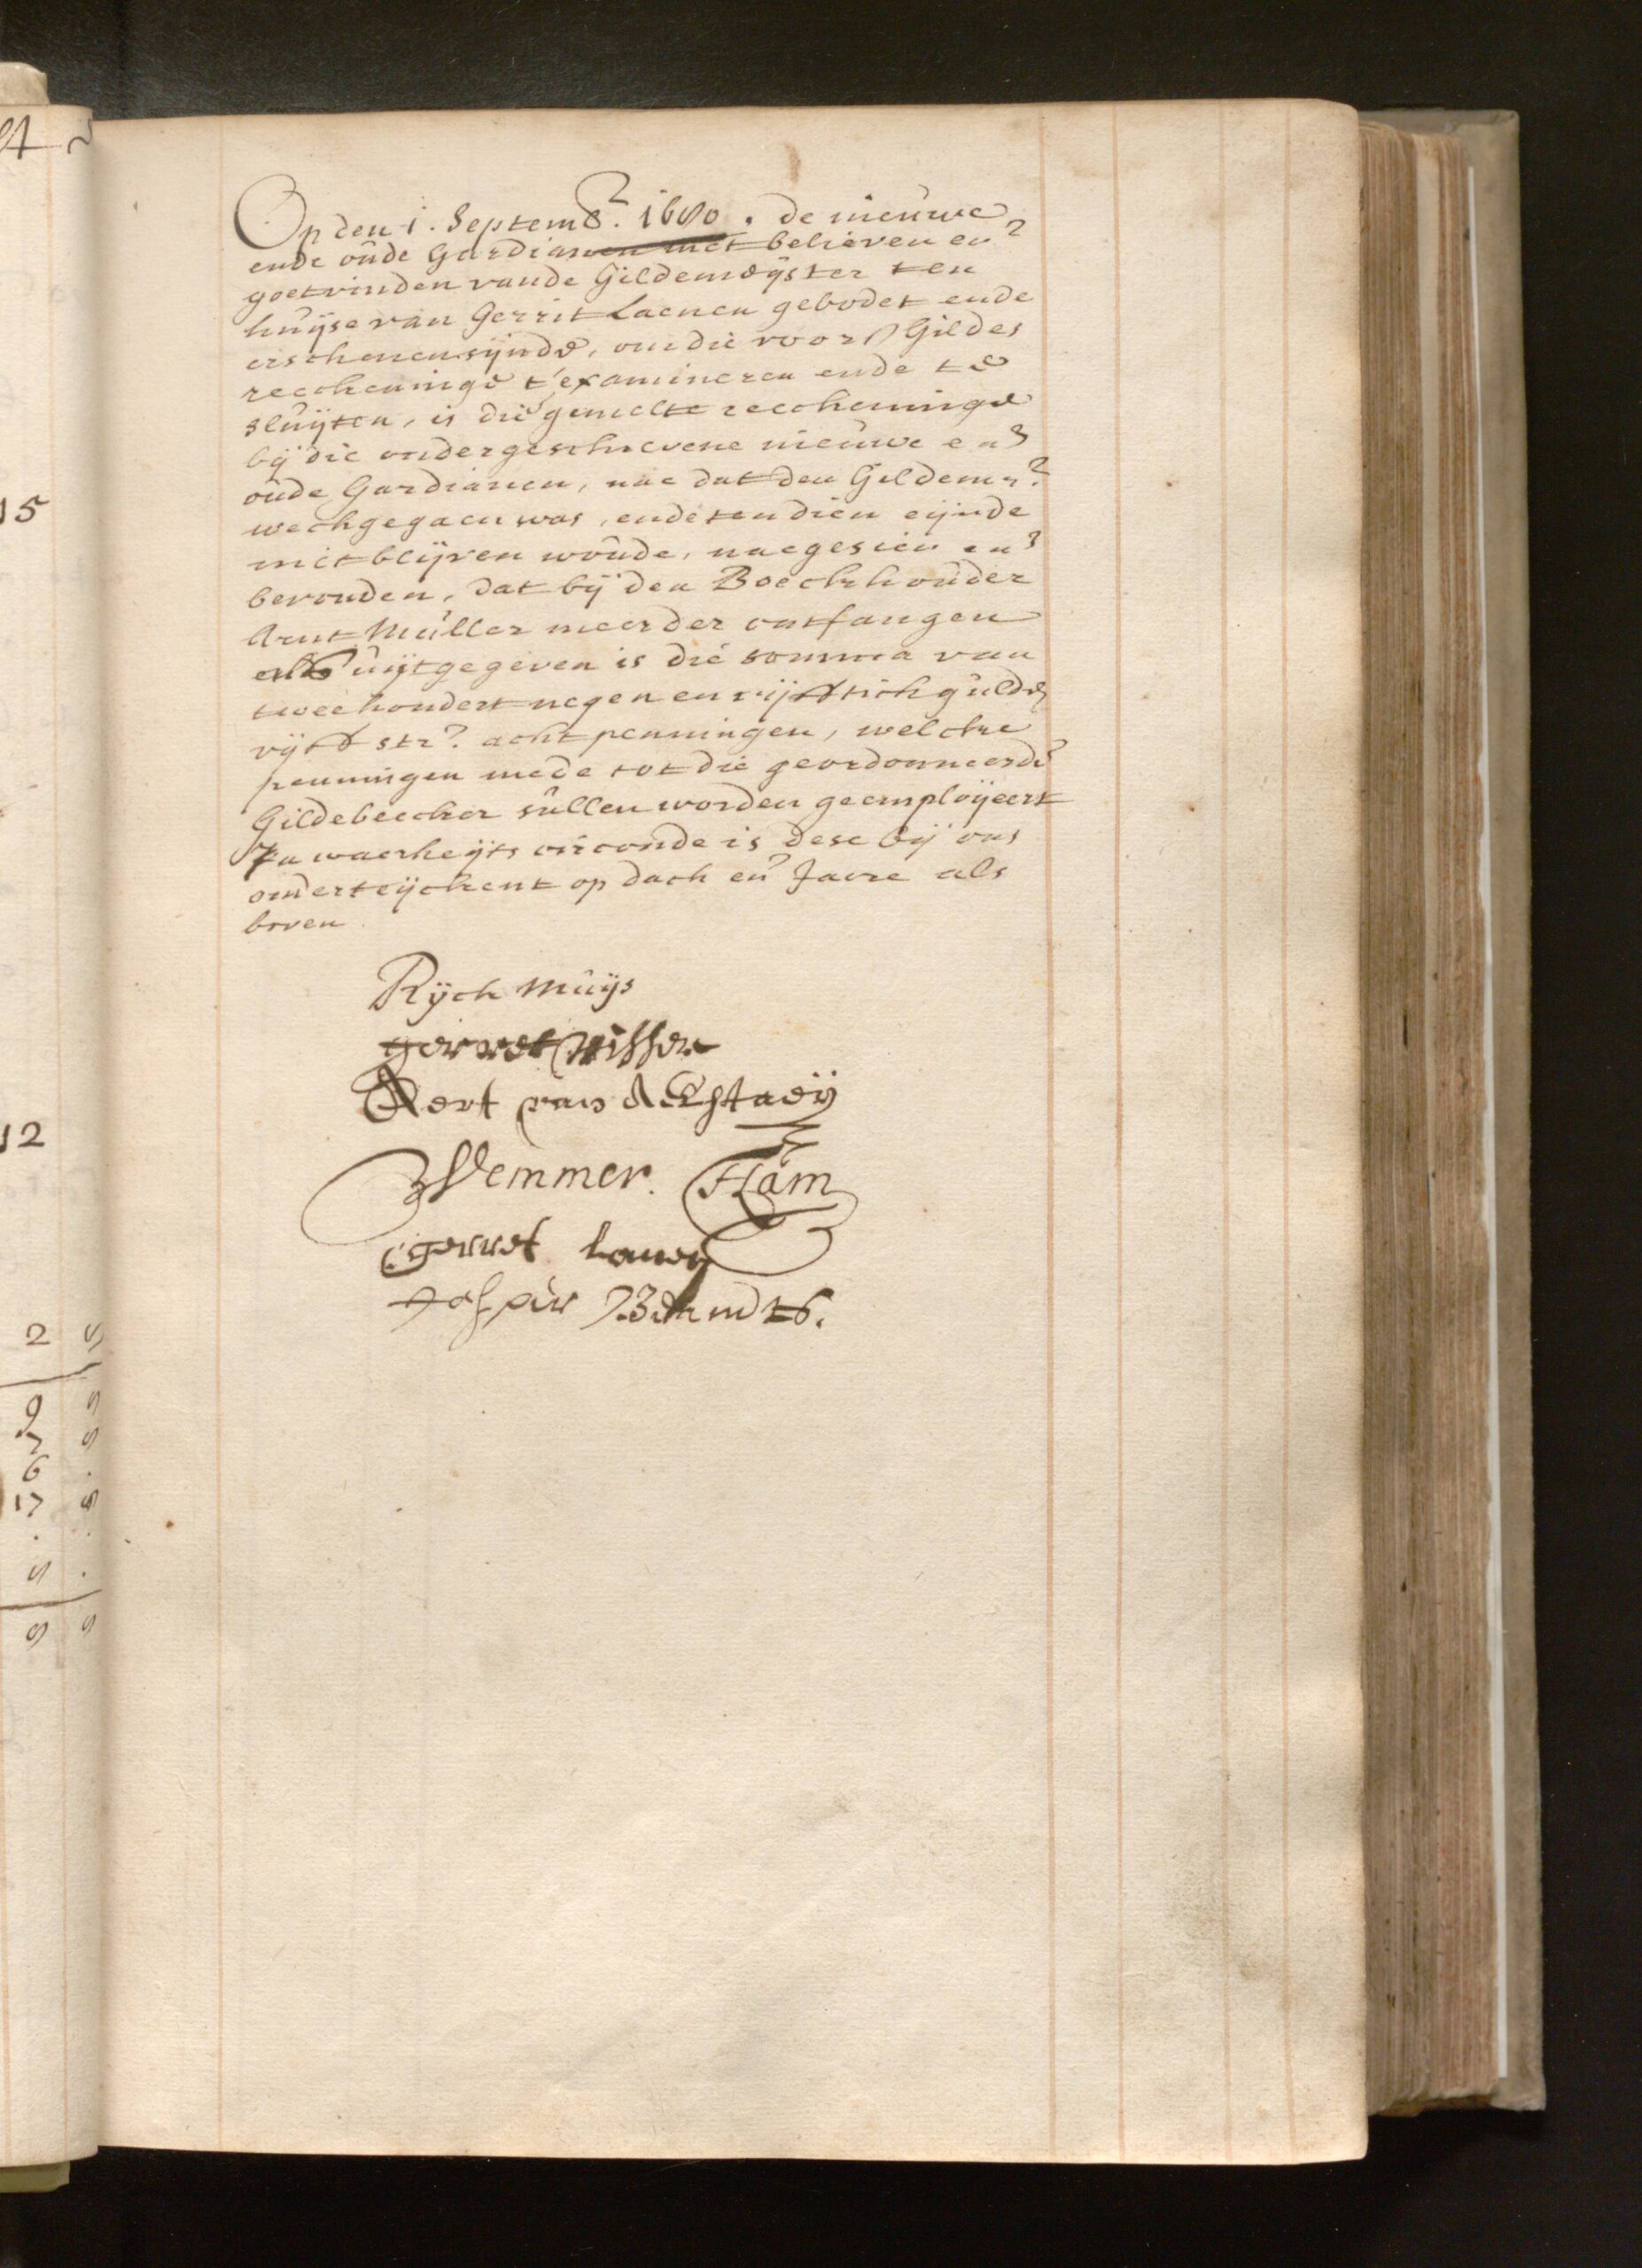 Op den 1. Septemb. 1680. de nieuwe
ende oude Gardianen met believen en
goetvinden vande Gildemeijster ten
huijse van Gerrit Laenen gebodet ende
erschenen sijnde, om die voors Gildes
reecheninge t'examineren ende te
sluijten, is die gemelte reecheninge
bij die ondergeschrevene nieuwe en
oude Gardianen, nae dat den Gildemr
wechgegaen was, ende ten dien eijnde
niet blijven woude, naegesien en
bevonden, dat bij den Boeckhouder
Arnt Muller meerder ontfangen
als uijtgegeven is die somma van
tweehondert negen en vijfftich gulde
vijff str. acht penningen, welcke
penningen mede tot die geordonneerde
Gildebeecker sullen worden geemploijeert
In waerheijts oirconde is dese bij ons
onderteijckent op dach en Jaere als
boven
Rijck Muijs
gerret visser
Aert van
Wemmer. Ham
gerret lanen
Jasper
15
12
2
9
6
17